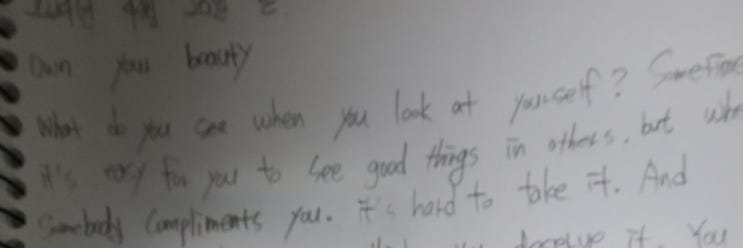 Own your beauty
What do you see when you look at yourself? Sometime
it's easy for you to see good things in others, but whe
Somebody Compliments you. it's hard to take it. And
deserve it You